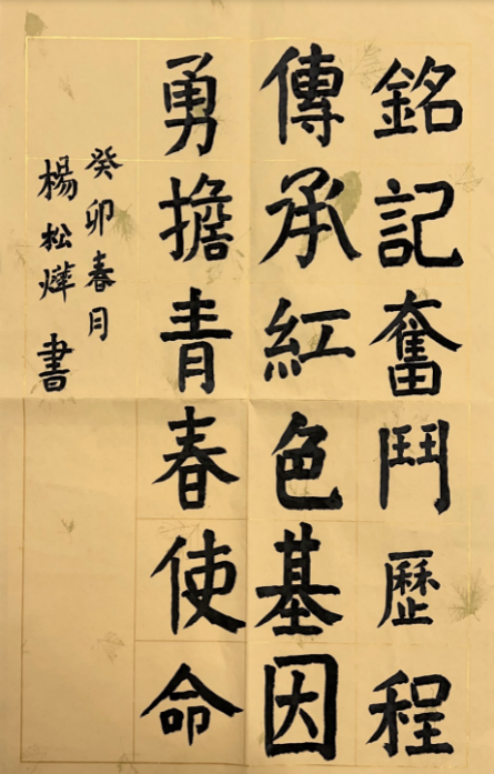 銘記奮鬥歷程
傳承紅色基因
勇擔青春使命
癸卯春月
楊松燁書